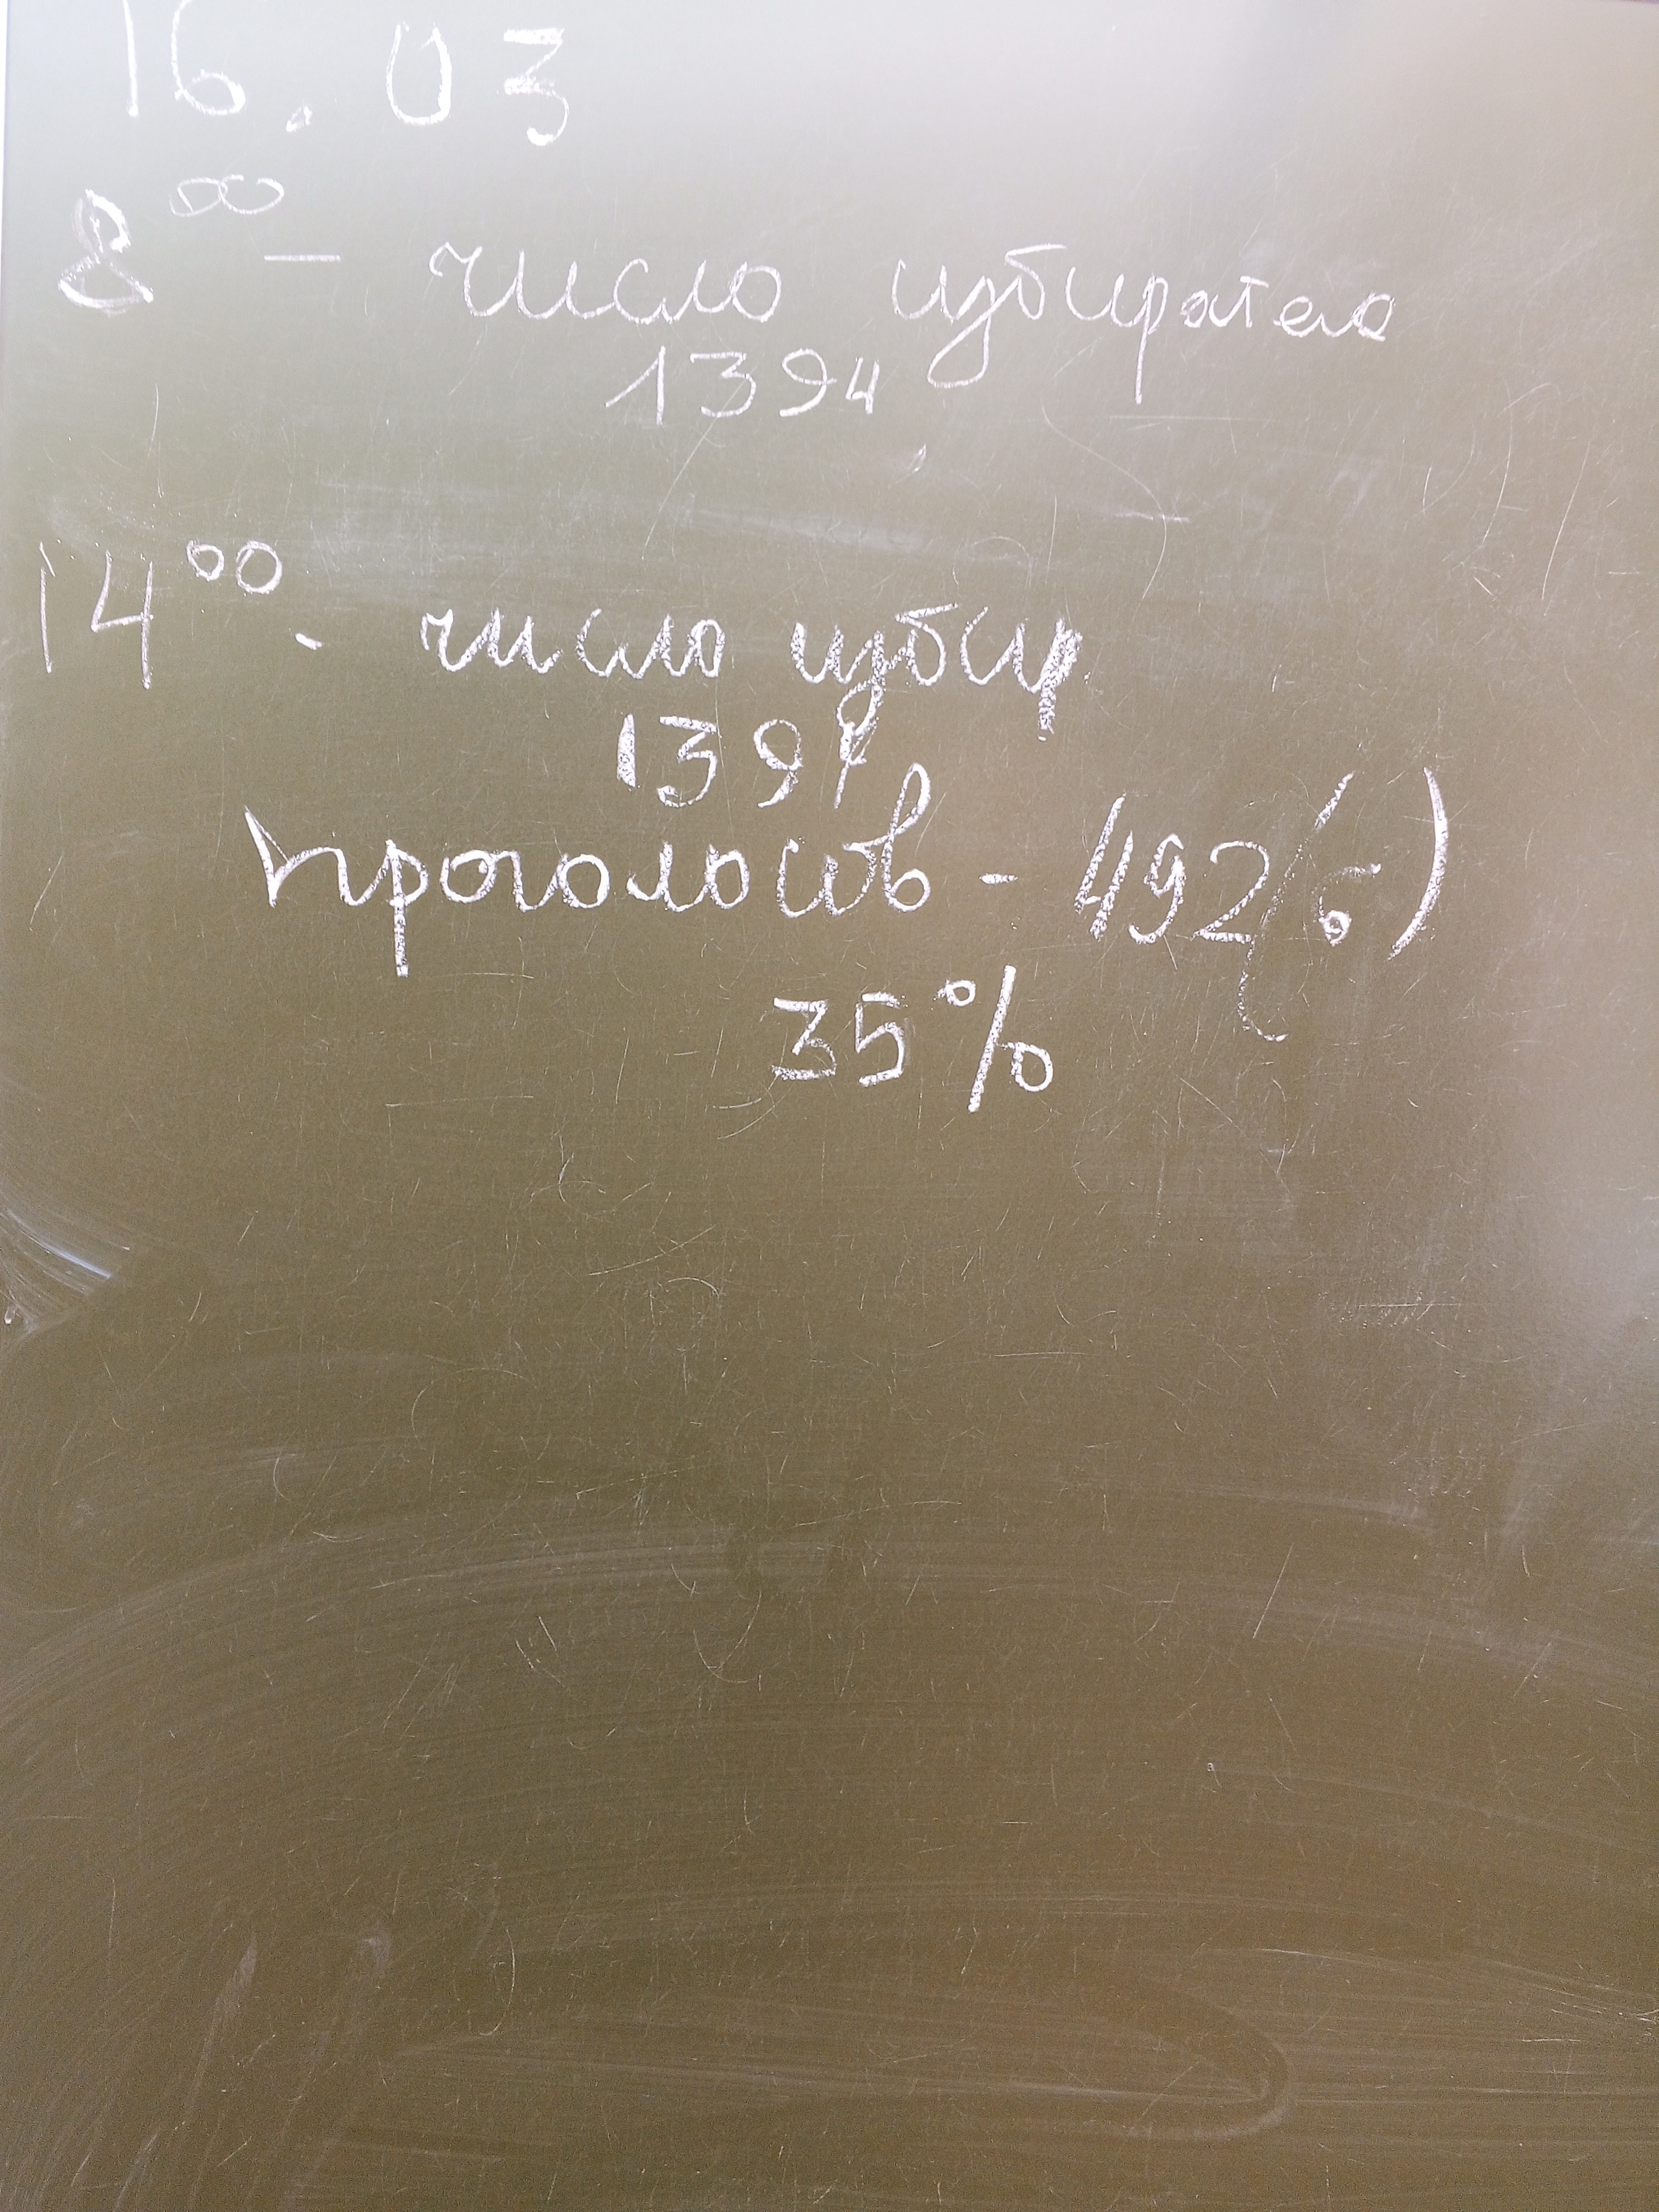 16.03
8⁰⁰ – число избирател
1394
14⁰⁰ - число избир
139
проголосов - 492(6)
35%